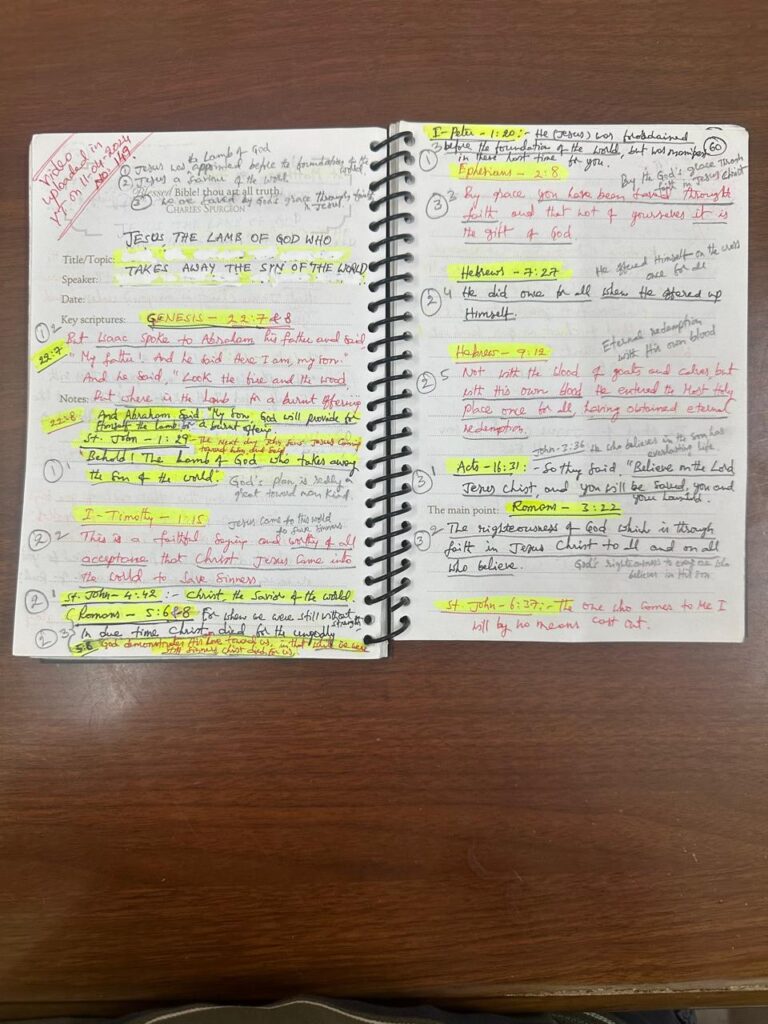 Video
uploaded in
YT on 11-04-2024
No: 149
as Lamb of God
① Jesus was appointed before the foundation of the world
② Jesus a Saviour of the world
③ We are saved by God's grace through faith in Jesus.
Blessed Bible! thou art all truth.
CHARLES SPURGEON
JESUS THE LAMB OF GOD WHO
Title/Topic:
TAKES AWAY THE SYN OF THE WORLD
Speaker:
Date:
Key scriptures: GENESIS - 22:7 & 8
① 2
But Isaac spoke to Abraham his father and said
22:7 "My father! And he said Here I am, my son."
And he said, "Look the fire and the wood,
Notes: But where is the lamb for a burnt offering
22:8 And Abraham said "My son, God will provide for
Himself the lamb for a burnt offering.
St. John - 1:29 - The next day John saw Jesus coming
toward him, and said
① 1 Behold! The Lamb of God who takes away
the Sin of the world". God's plan is really
great toward man kind.
I - Timothy - 1:15 Jesus came to this world
to save sinners.
② 2 This is a faithful saying and worthy of all
acceptance that Christ Jesus came into
the world to save sinners.
② 1 St. John - 4:42 :- Christ, the Savior of the world.
Romans - 5:6&8 For when we were still without
strength,
② 3 in due time Christ died for the ungodly
5:8 God demonstrates His love toward us, in that while we were
still sinners Christ died for us.
I - Peter - 1:20 :- He (Jesus) was foreordained
60
① 3 before the foundation of the world, but was manifest
in these last time for you.
Ephesians - 2:8 By the God's grace through
faith in Jesus Christ
③ 3 By grace you have been saved through
faith and that not of yourselves it is
the gift of God
Hebrews - 7:27 He offered Himself on the cross
once for all
② 4 He did once for all when He offered up
Himself.
Eternal redemption
with His own blood
Hebrew - 9:12
② 5 Not with the blood of goats and calves but
with His own blood He entered the Most Holy
place once for all having obtained eternal
redemption.
John - 3:36 He who believes in the Son has
everlasting life
③ 1 Acts - 16:31 :- So they said, "Believe on the Lord
Jesus Christ, and you will be saved, you and
your
The main point: Romans - 3:22
③ 2 The righteousness of God which is through
faith in Jesus Christ to all and on all
who believe. God's righteousness to every one who
believes in His Son
St. John - 6:37 :- The one who comes to Me I
will by no means cast out.